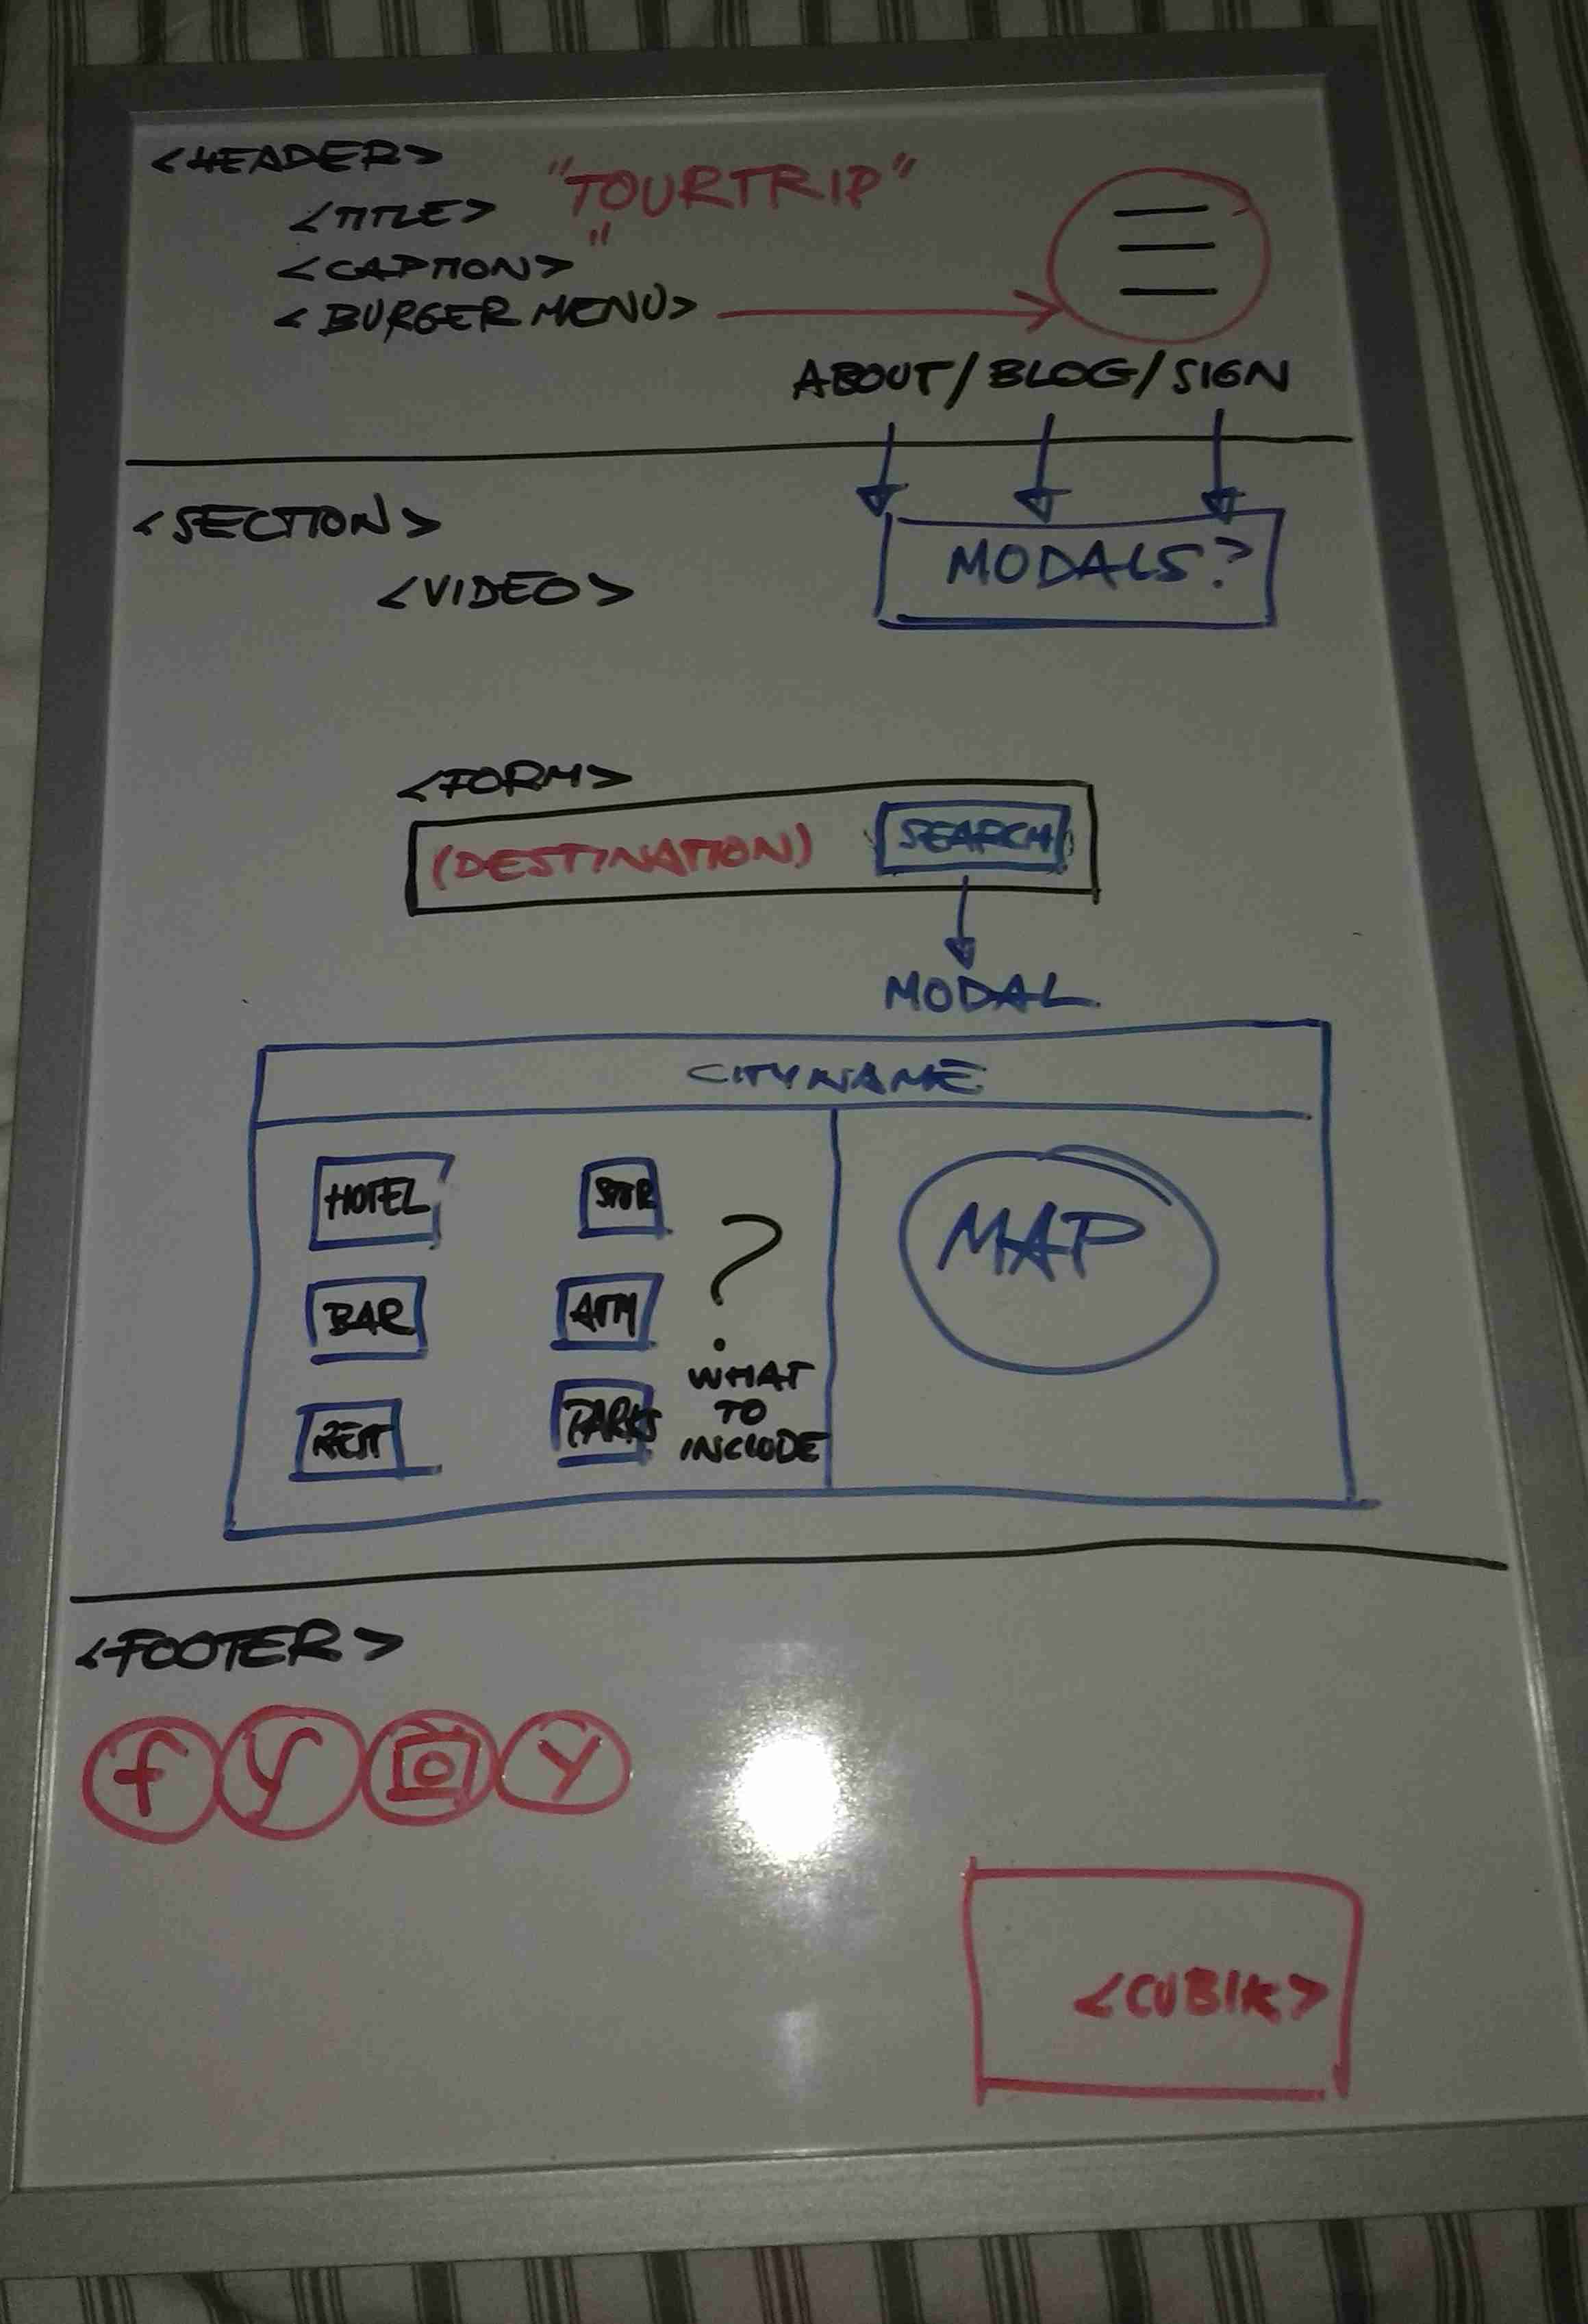 <HEADER>
<TITLE> "TOURTRIP"
<CAPTION> "
<BURGER MENU>
ABOUT/BLOG/SIGN
<SECTION>
MODALS?
<VIDEO>
<FORM>
(DESTINATION) SEARCH
MODAL
CITYNAME
HOTEL
STOR
BAR
ATM
REST
PARKS
?
WHAT
TO
INCLUDE
MAP
<FOOTER>
f y Y
<CUBIK>